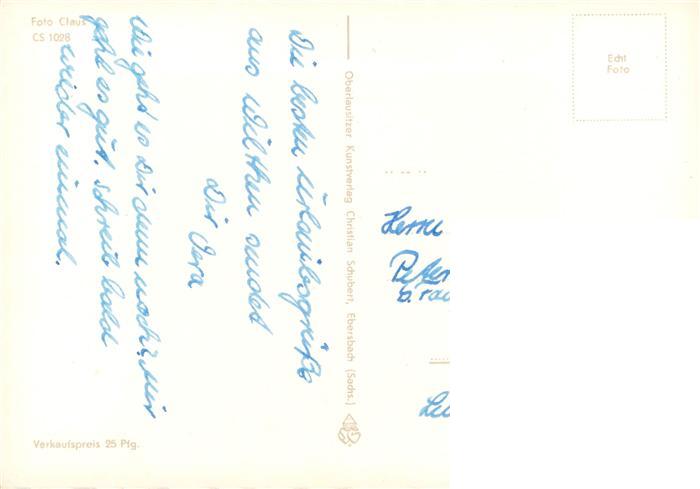 Foto Claus
CS 1028
Die besten Urlaubsgrüße
aus Wilthen sendet
Dir Vera
Wie geht es Dir denn noch? Mir
geht es gut. Schreib bald
wieder einmal.
Oberlausitzer Kunstverlag Christian Schubert, Ebersbach (Sachs.)
Echt
Foto
Herrn
Peter
Verkaufspreis 25 Pfg.